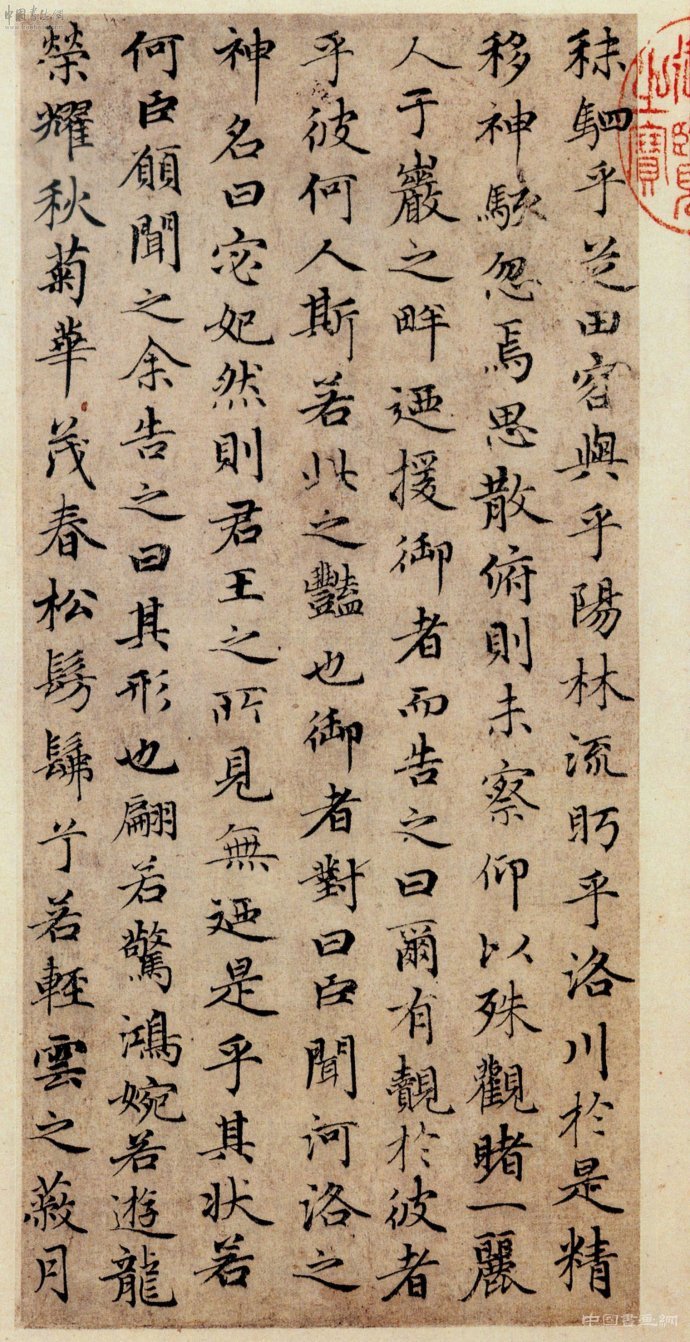 秣駟乎芝田容與乎陽林流眄乎洛川於是精
移神駭忽焉思散俯則未察仰以殊觀睹一麗
人于巖之畔迺援御者而告之曰爾有覿於彼者
乎彼何人斯若此之豔也御者對曰臣聞河洛之
神名曰宓妃然則君王之所見無迺是乎其狀若
何臣願聞之余告之曰其形也翩若驚鴻婉若遊龍
榮耀秋菊華茂春松髣髴兮若輕雲之蔽月
之寶
中国書画網